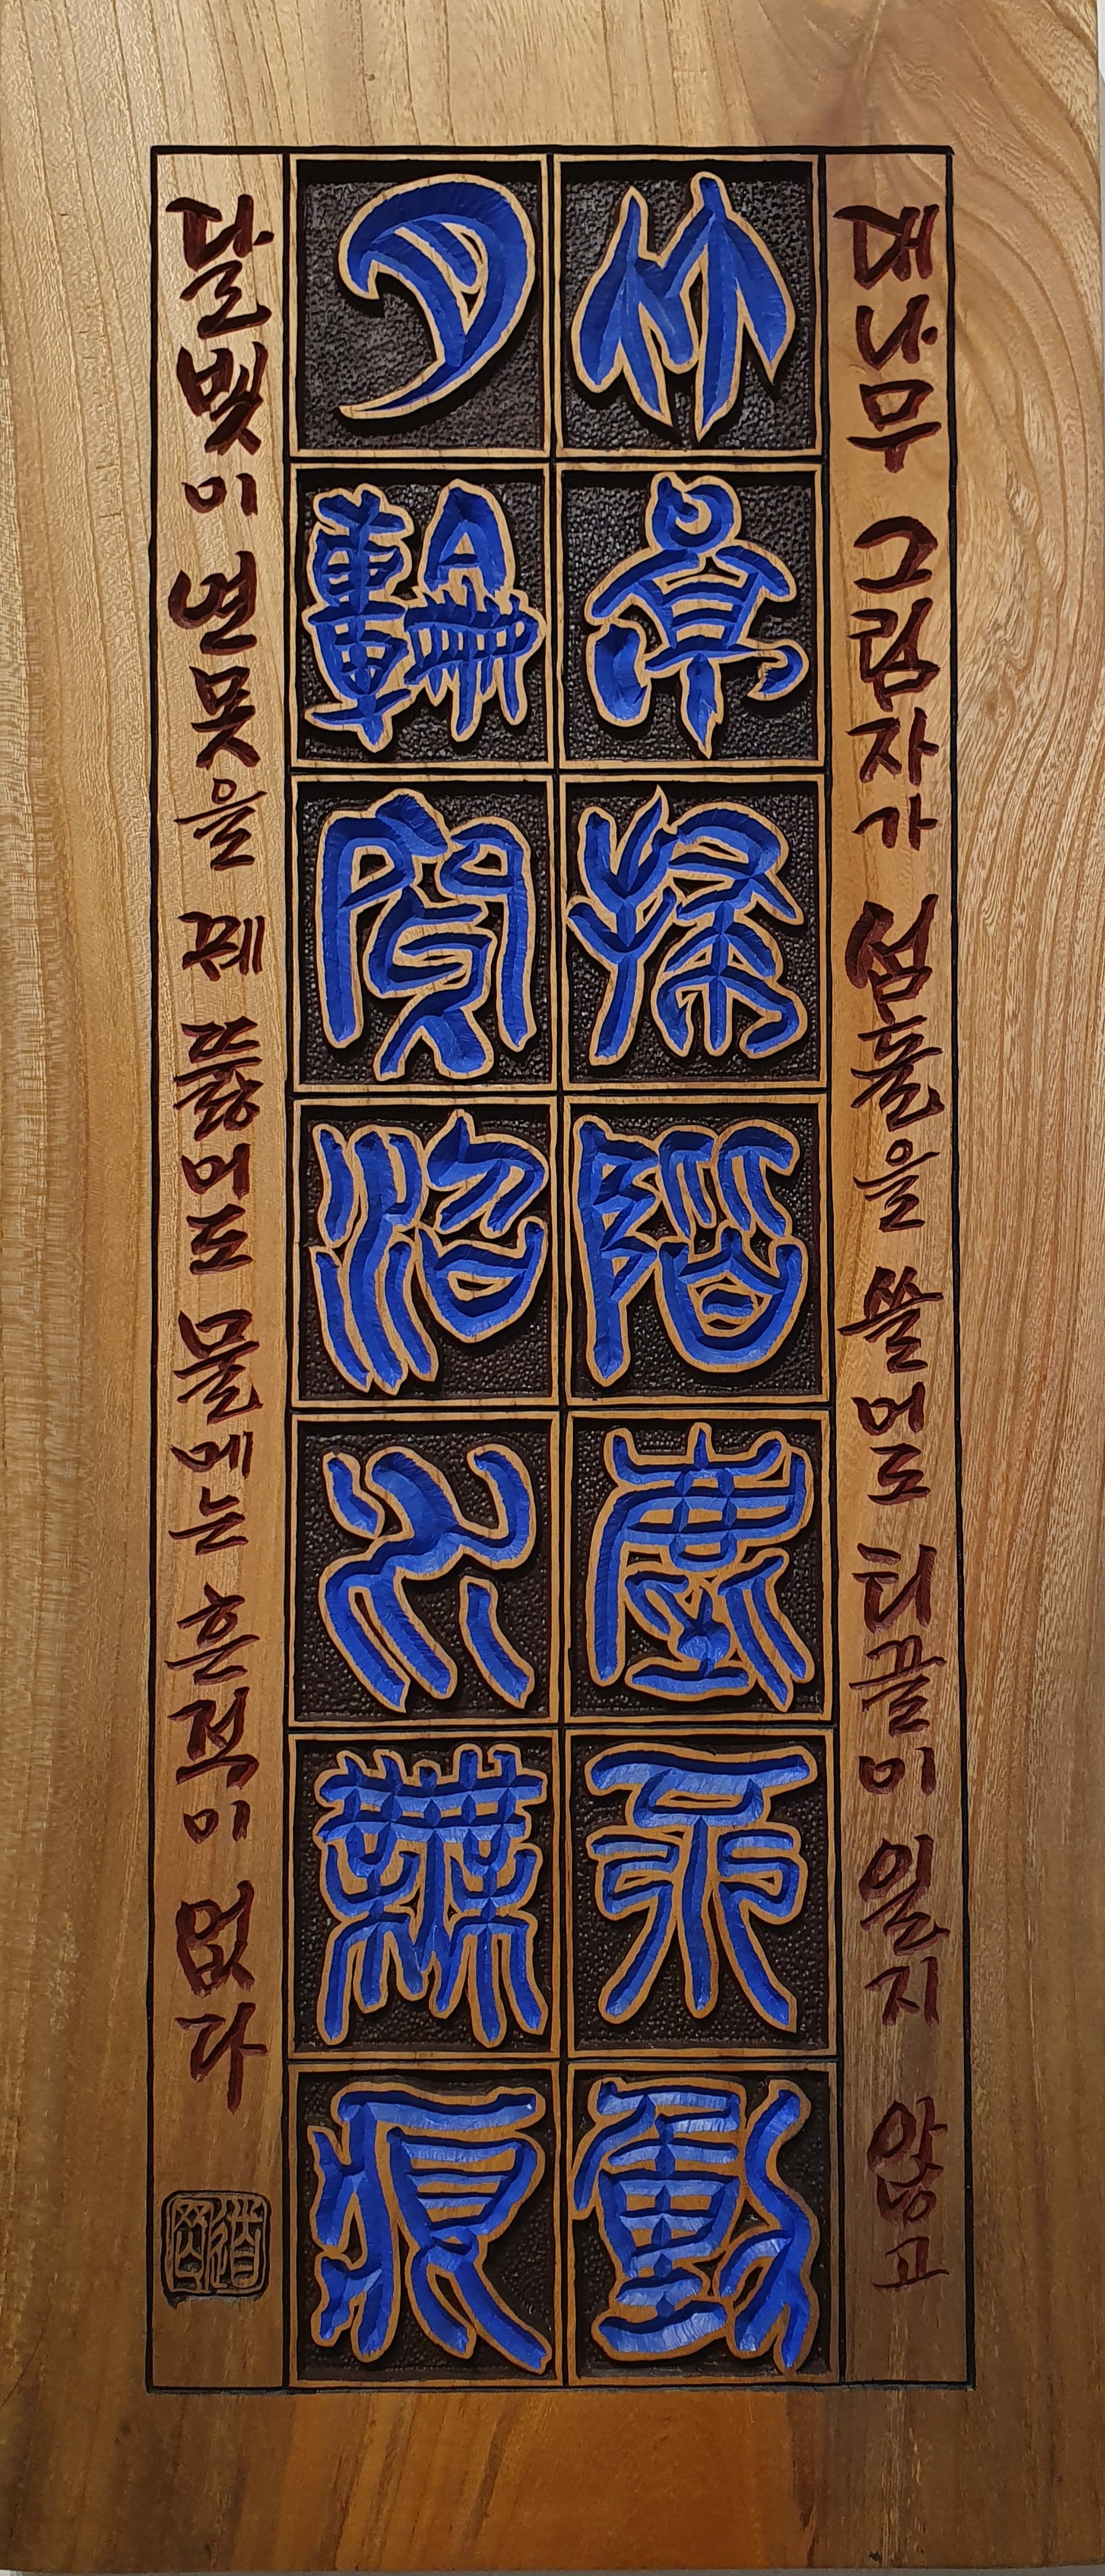 대나무 그림자가 섬돌을 쓸어도 티끌이 일지 않고
竹影掃階塵不動
月輪穿沼水無痕
달빛이 연못을 꿰뚫어도 물에는 흔적이 없다